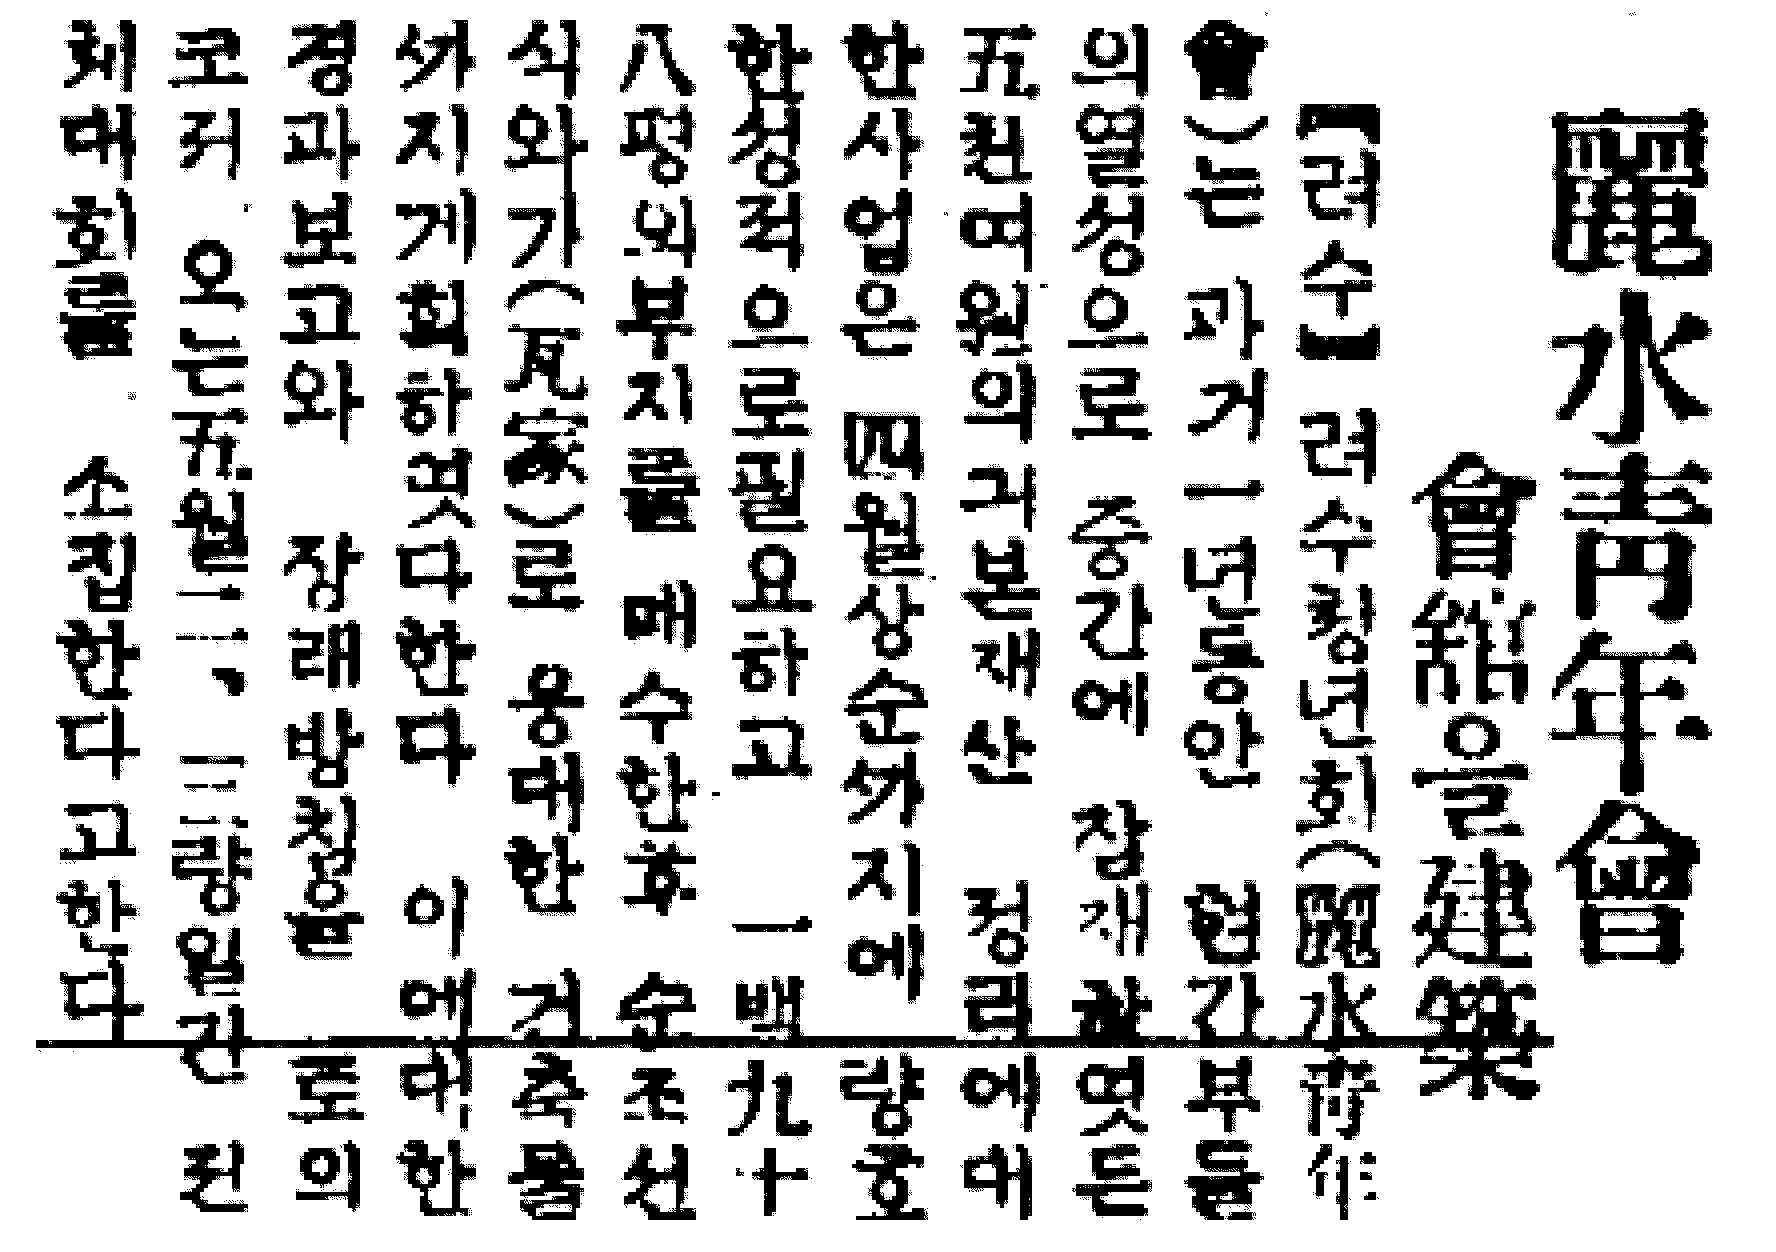 麗水靑年會
會舘을建築
【려수】 려수청년회(麗水靑年
會)는 과거一년동안 현간부들
의열성으로 중간에 잠재하엿든
五천여원의긔본재산 정리에대
한사업은 四월상순까지에 량호
한성적으로필요하고 一백九十
八평의부지를 매수한후 순조선
식와가(瓦家)로 웅대한 건축물
까지게획하엿다한다 이에대한
경과보고와 장래방침을 토의
코저 오는五월一二、三량일간 전
체대회를 소집한다고한다